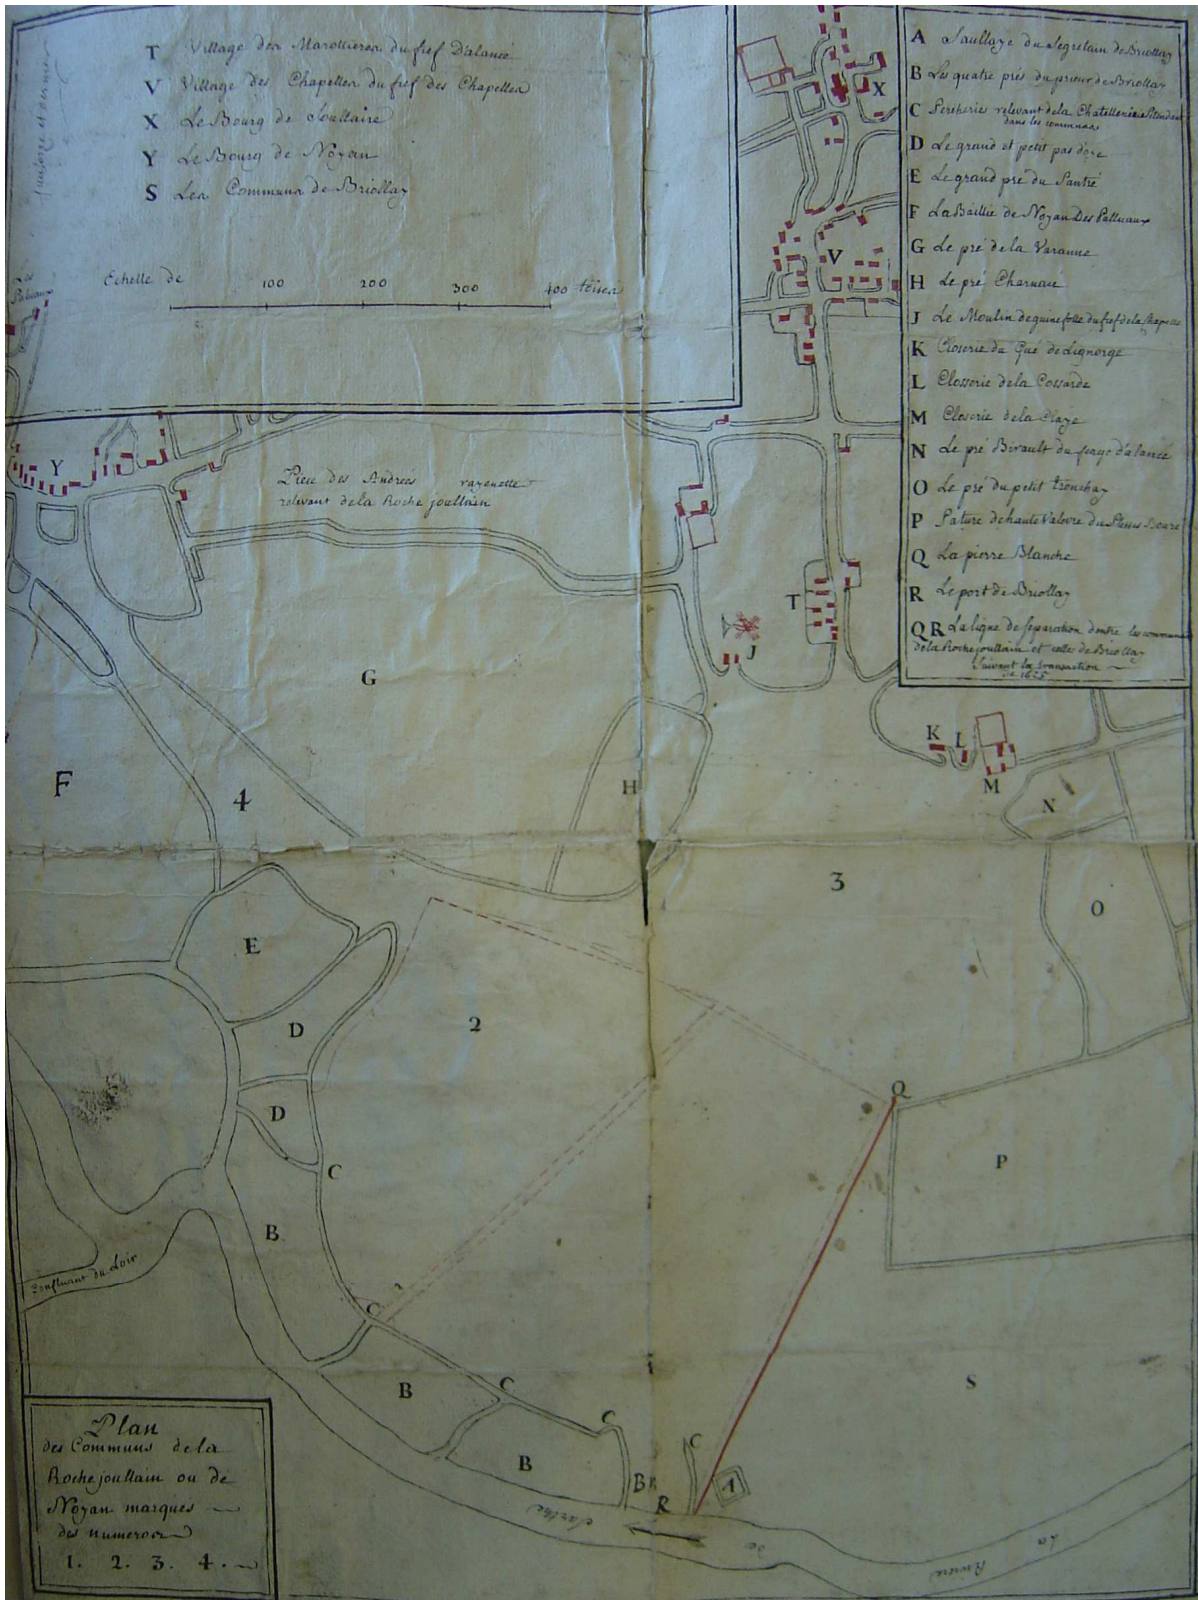 T Village des Marottieres du fief Dalancé
V Village des Chapelles du fief des Chapelles
X Le Bourg de Soullaire
Y Le Bourg de Noyan
S Les Communs de Briollay
Echelle de 100 200 300 400 toises
Les
Paluaux
A Saullaye du Segretain de Briollay
B Les quatre prés du prieur de Briollay
C relevant de la Chatellenie
dans les communs
D Le grand et petit pas d'oye
E Le grand pré du Santré
F La Baillie de Noyan Des Palluaux
G Le pré de la Varanne
H Le pré Charuau
J Le Moulin de quinefolle du fief de la Chapelle
K Closerie du Gué de Lignorge
L Closserie de la Cossarde
M Closerie de la Claye
N Le pré Birault du d'alancé
O Le pré du petit tronchay
P Pature de haute Valoire du Plessis Bouré
Q La pierre Blanche
R Le port de Briollay
QR La ligne de separation d'entre les communs
de la Roche joullain et celle de Briollay
Suivant la transaction
de 1625
X
V
Y
Piese des Andrées rayenette
relevant de la Roche joullain
T
J
G
K L
M
F
4
H
N
3
O
E
D
2
D
Q
C
P
B
Confluent du Loir
C
B
C
C
S
B
C
B R
R
A
La Riviere de Sartre
Plan
des Communs de la
Roche joullain ou de
Noyan marques
des numeros
1. 2. 3. 4.